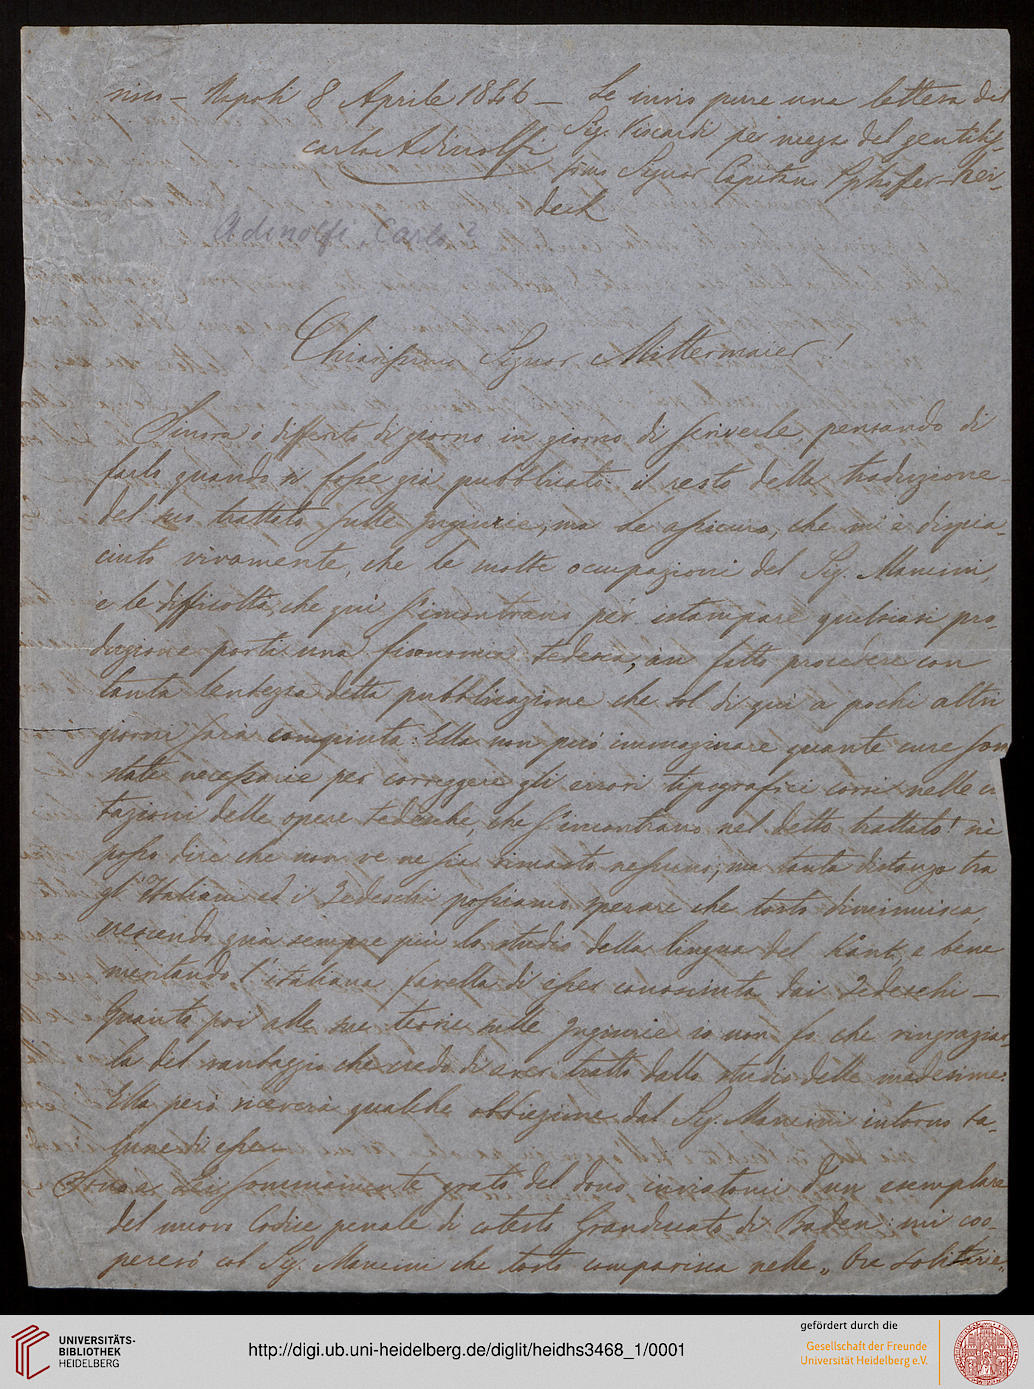 suo – Napoli 8 Aprile 1846 – Le invio pure una lettera del
Sig. Viscardi per mezzo del gentilis-
Carlo Adinolfi
simo Signor Capitan Pfhifer-Hei-
deck
Adinolfi, Carlo?
Chiarissimo Signor Mittermaier!
Finora ò differito di giorno in giorno di scriverle, pensando di
farlo quando si fosse già pubblicato il resto della traduzione
del suo trattato sulle Ingiurie; ma Le assicuro, che mi è dispia-
ciuto vivamente, che le molte occupazioni del Sig. Mancini,
e le difficoltà, che qui s'incontrano per istampare qualsiasi pro-
duzione porti una fisonomia tedesca, àn fatto procedere con
tanta lentezza detta pubblicazione che sol di qui a pochi altri
giorni sarà compiuta: Ella non può immaginare quante cure son
state necessarie per correggere gli errori tipografici corsi nelle ci
tazioni delle opere tedesche, che s'incontrano nel detto trattato! nè
posso dire che non ve ne sia rimasto nessuno; ma tanta distanza tra
gl'Italiani ed i Tedeschi possiamo sperare che tosto diminuisca,
crescendo quà sempre più lo studio della lingua del Kant, e bene
meritando l'italiana favella di esser conosciuta dai Tedeschi –
Quanto poi alle sue teorie sulle Ingiurie io non fo che ringraziar-
la del vantaggio che credo di aver tratto dallo studio delle medesime:
Ella però riceverà qualche obbiezione dal Sig. Mancini intorno ta-
lune di esse –
Sono a Lei sommamente grato del dono inviatomi d'un esemplare
del nuovo Codice penale di cotesto Granducato di Baden: mi coo-
pererò col Sig. Mancini che tosto comparisca nelle „Ore solitarie„
UNIVERSITÄTS-
BIBLIOTHEK
HEIDELBERG
http://digi.ub.uni-heidelberg.de/diglit/heidhs3468_1/0001
gefördert durch die
Gesellschaft der Freunde
Universität Heidelberg e.V.